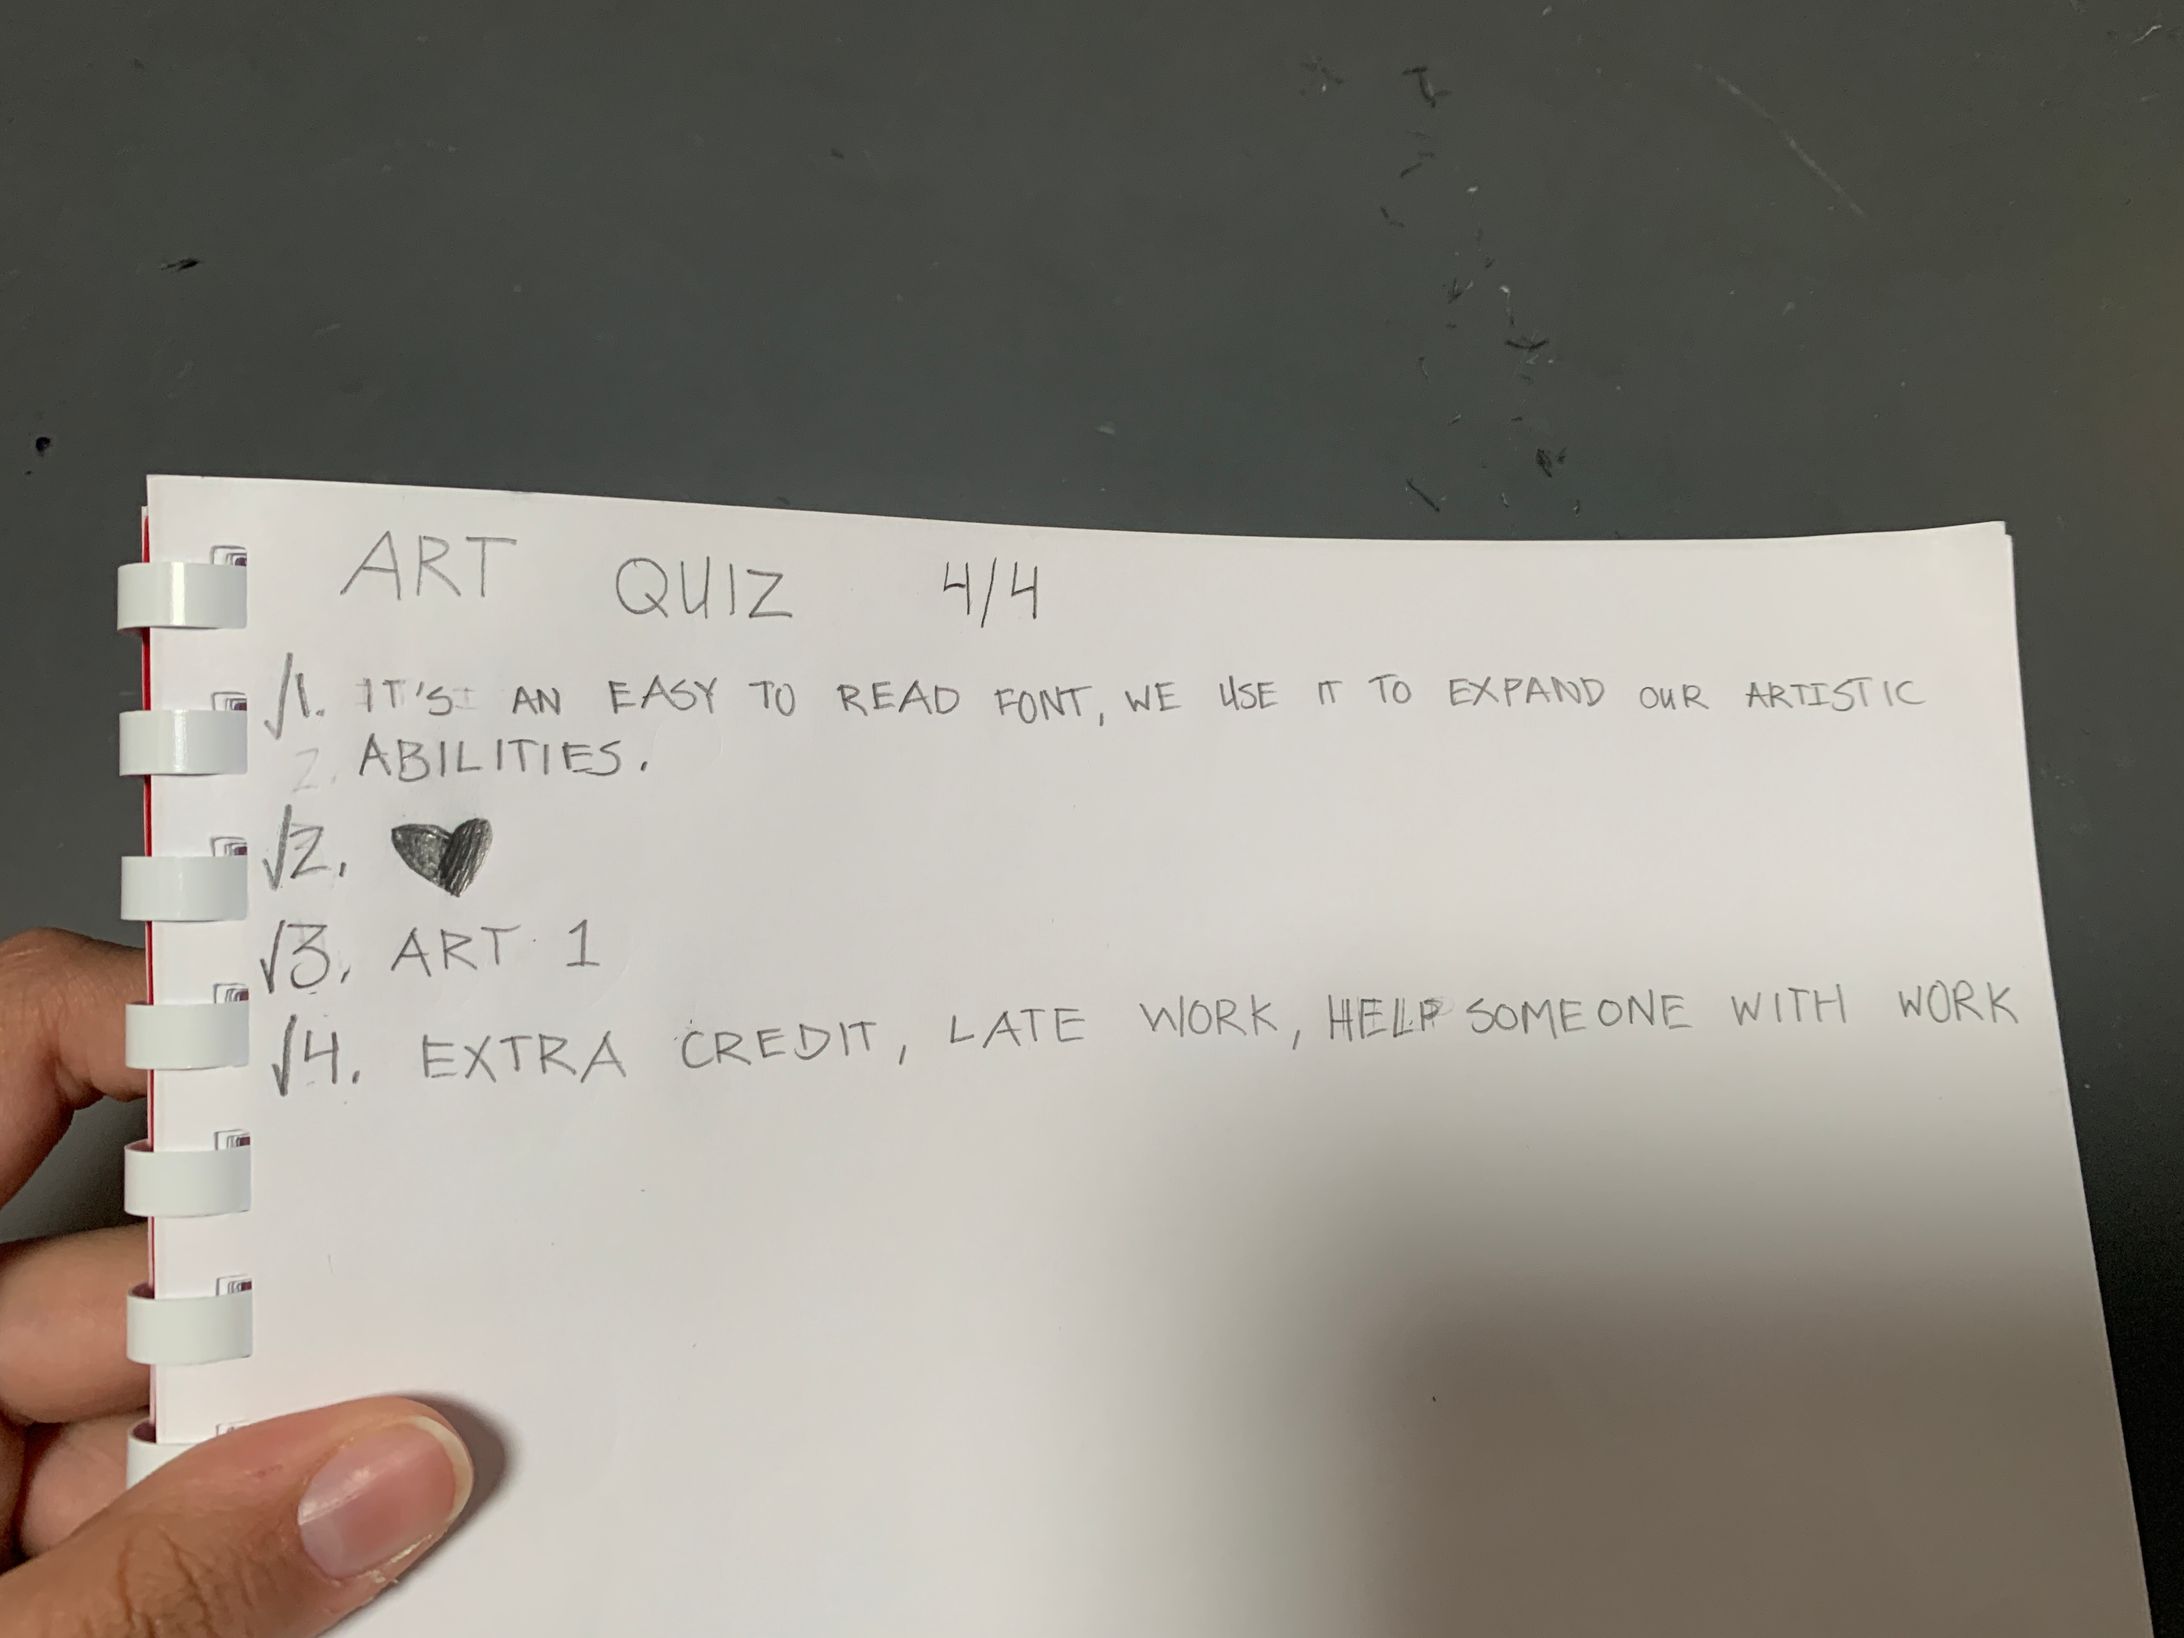 ART QUIZ 4/4
√1. IT'S AN EASY TO READ FONT, WE USE IT TO EXPAND OUR ARTISTIC
2. ABILITIES.
√2. ♥
√3. ART 1
√4. EXTRA CREDIT, LATE WORK, HELP SOMEONE WITH WORK